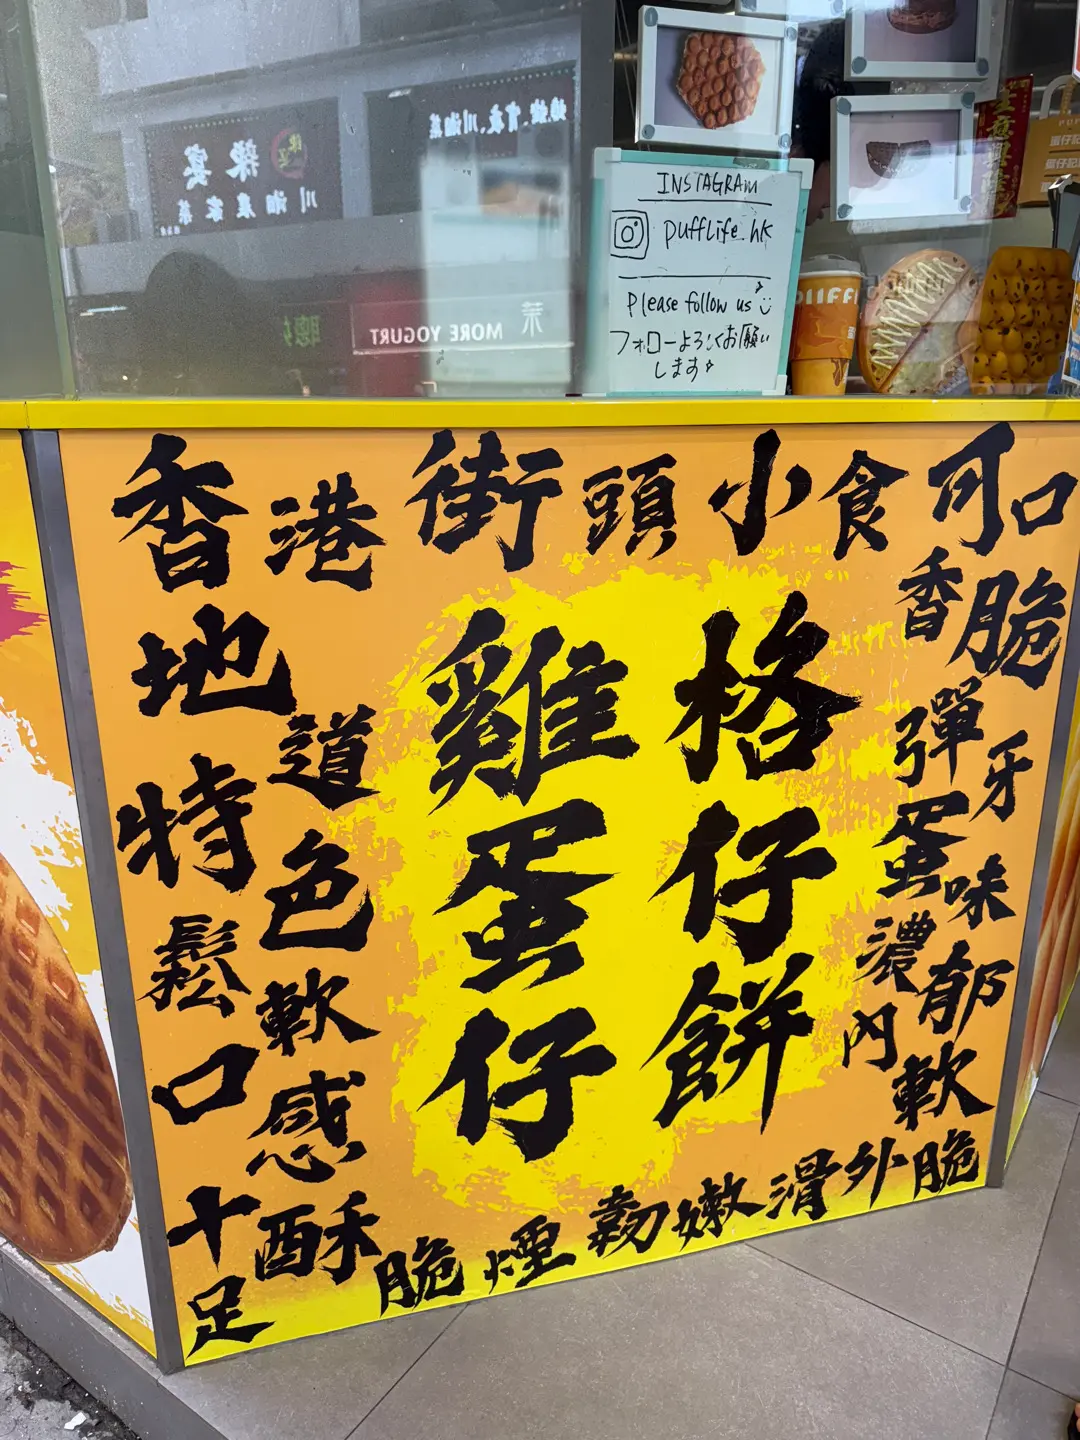 辣宴
川湘農家菜
MORE YOGURT 茉
INSTAGRAM
pufflife_hk
Please follow us
フォローよろしくお願い
します
香港街頭小食可口
香脆
彈牙
蛋味
濃郁
內軟
地道
特色
鬆軟
口感
十足
酥脆煙韌嫩滑外脆
雞蛋仔
格仔餅